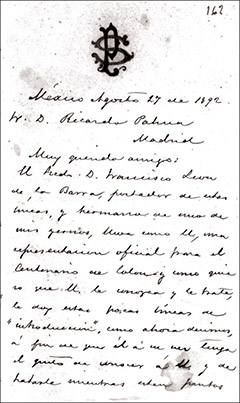 162
México Agosto 27 de 1892.
Sr. D. Ricardo Palma
Madrid
Muy querido amigo:
El Licdo. D. Francisco Leon
de la Barra, portador de estas
líneas, y hermano de uno de
mis yernos, lleva como U, una
representacion oficial para el
Centenario de Colon; y como quie
ro que U. le conozca y le trate,
le doy estas pocas líneas de
"introduccion", como ahora decimos,
á fin de que él á su vez tenga
el gusto de conocer á U. y de
tratarle mientras esten juntos